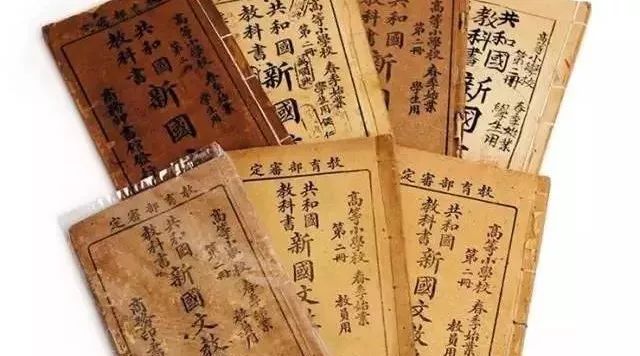 高等小學校 春季始業
第二冊 學生用
共和國
教科書
新國文
商務印書館發
高等小學校 春季始業
第二冊
學生用
共和國
教科書
新國文
高等小學校 春季始業
第二冊 學生用
共和國
教科書
新國文
高等小學校 春季始業
第二冊 學生用
共和國
教科書
新國文
教育部審定
高等小學校 春季始業
第二冊
共和國
教科書
新國文教
商務印書
教育部審定
高等小學校 春季始業
第二冊 教員用
共和國
教科書
新國文教
教育部審定
高等小學校 春季始業
第二冊 教員用
共和國
教科書
新國文教